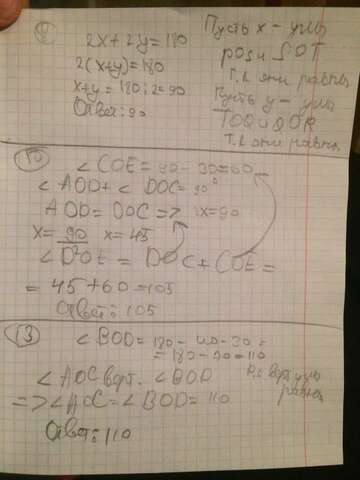 2x+2y=180
2(x+y)=180
x+y=180:2=90
Ответ: 90
Пусть x - углы
POS и SOT
т.к они равны
Пусть y - углы
TOQ и QOR
т.к они равны
10
∠COE=90-30=60
∠AOD+∠DOC=90°
AOD=DOC => 2x=90
x=90 x=45
∠DOE = DOC+COE=
=45+60=105
Ответ: 105
13
∠BOD=180-40-30=
=180-70=110
∠AOC верт. ∠BOD
равны
=>∠AOC=∠BOD=110
Ответ: 110